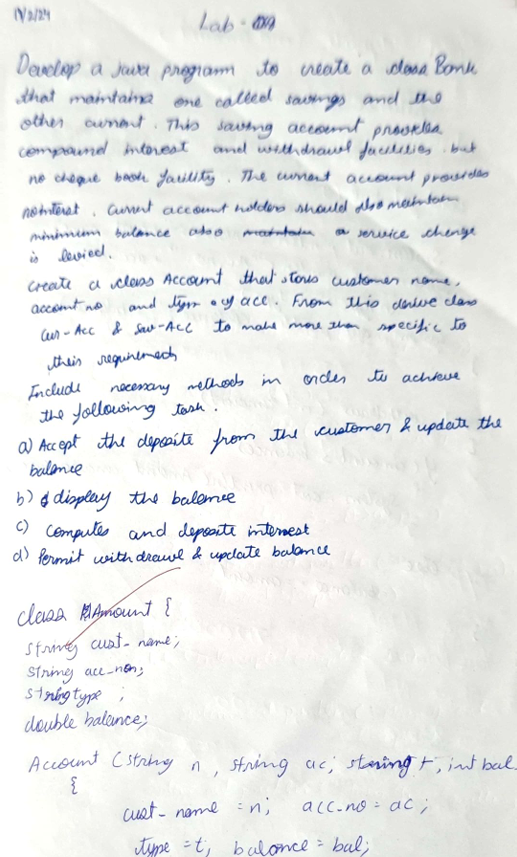 19/2/24
Lab -
Develop a java program to create a class Bank
that maintains one called savings and the
other current. This saving account provides
compound interest and withdrawl facilities but
no cheque book facility. The current account provides
no interst. Current account holders should also maintain
minimum balance also maintain a service charge
is levied.
Create a class Account that stores customer name,
account no and type of acc. From this derive class
Cur-Acc & Sav-Acc to make more than specific to
their requirments
Include necessary methods in order to achieve
the following task.
a) Accept the deposite from the customer & update the
balance
b) display the balance
c) computes and deposite interest
d) Permit withdrawl & update balance
class Amount {
string cust_name;
string acc_no;
string type ;
double balance;
Account (string n, string ac; string t, int bal
{
cust_name = n; acc_no = ac;
type = t; balance = bal;